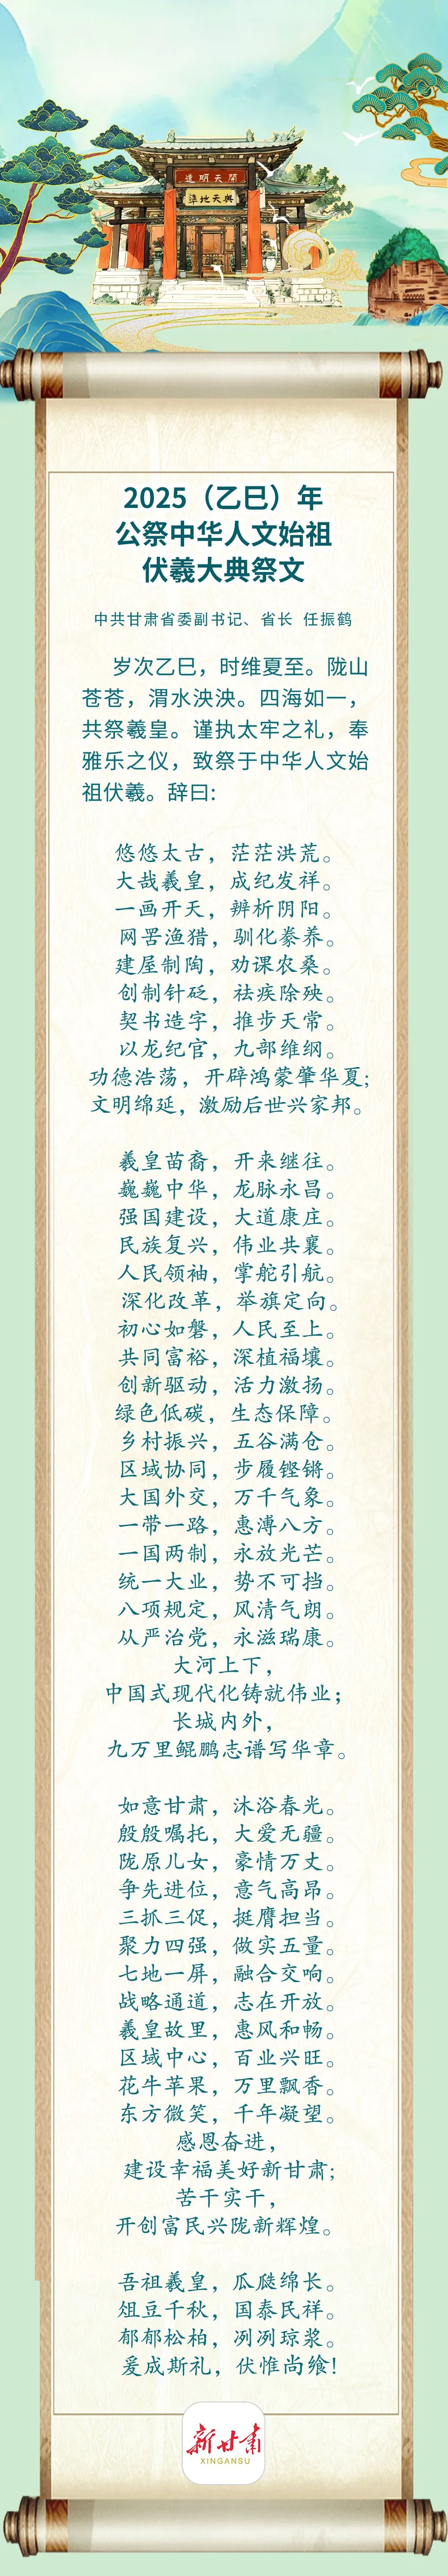 開天明道
與天地準
2025（乙巳）年
公祭中华人文始祖
伏羲大典祭文
中共甘肃省委副书记、省长 任振鹤
岁次乙巳，时维夏至。陇山
苍苍，渭水泱泱。四海如一，
共祭羲皇。谨执太牢之礼，奉
雅乐之仪，致祭于中华人文始
祖伏羲。辞曰:
悠悠太古，茫茫洪荒。
大哉羲皇，成纪发祥。
一画开天，辨析阴阳。
网罟渔猎，驯化豢养。
建屋制陶，劝课农桑。
创制针砭，祛疾除殃。
契书造字，推步天常。
以龙纪官，九部维纲。
功德浩荡，开辟鸿蒙肇华夏;
文明绵延，激励后世兴家邦。
羲皇苗裔，开来继往。
巍巍中华，龙脉永昌。
强国建设，大道康庄。
民族复兴，伟业共襄。
人民领袖，掌舵引航。
深化改革，举旗定向。
初心如磐，人民至上。
共同富裕，深植福壤。
创新驱动，活力激扬。
绿色低碳，生态保障。
乡村振兴，五谷满仓。
区域协同，步履铿锵。
大国外交，万千气象。
一带一路，惠溥八方。
一国两制，永放光芒。
统一大业，势不可挡。
八项规定，风清气朗。
从严治党，永滋瑞康。
大河上下，
中国式现代化铸就伟业；
长城内外，
九万里鲲鹏志谱写华章。
如意甘肃，沐浴春光。
殷殷嘱托，大爱无疆。
陇原儿女，豪情万丈。
争先进位，意气高昂。
三抓三促，挺膺担当。
聚力四强，做实五量。
七地一屏，融合交响。
战略通道，志在开放。
羲皇故里，惠风和畅。
区域中心，百业兴旺。
花牛苹果，万里飘香。
东方微笑，千年凝望。
感恩奋进，
建设幸福美好新甘肃;
苦干实干，
开创富民兴陇新辉煌。
吾祖羲皇，瓜瓞绵长。
俎豆千秋，国泰民祥。
郁郁松柏，冽冽琼浆。
爰成斯礼，伏惟尚飨!
新甘肃
XINGANSU